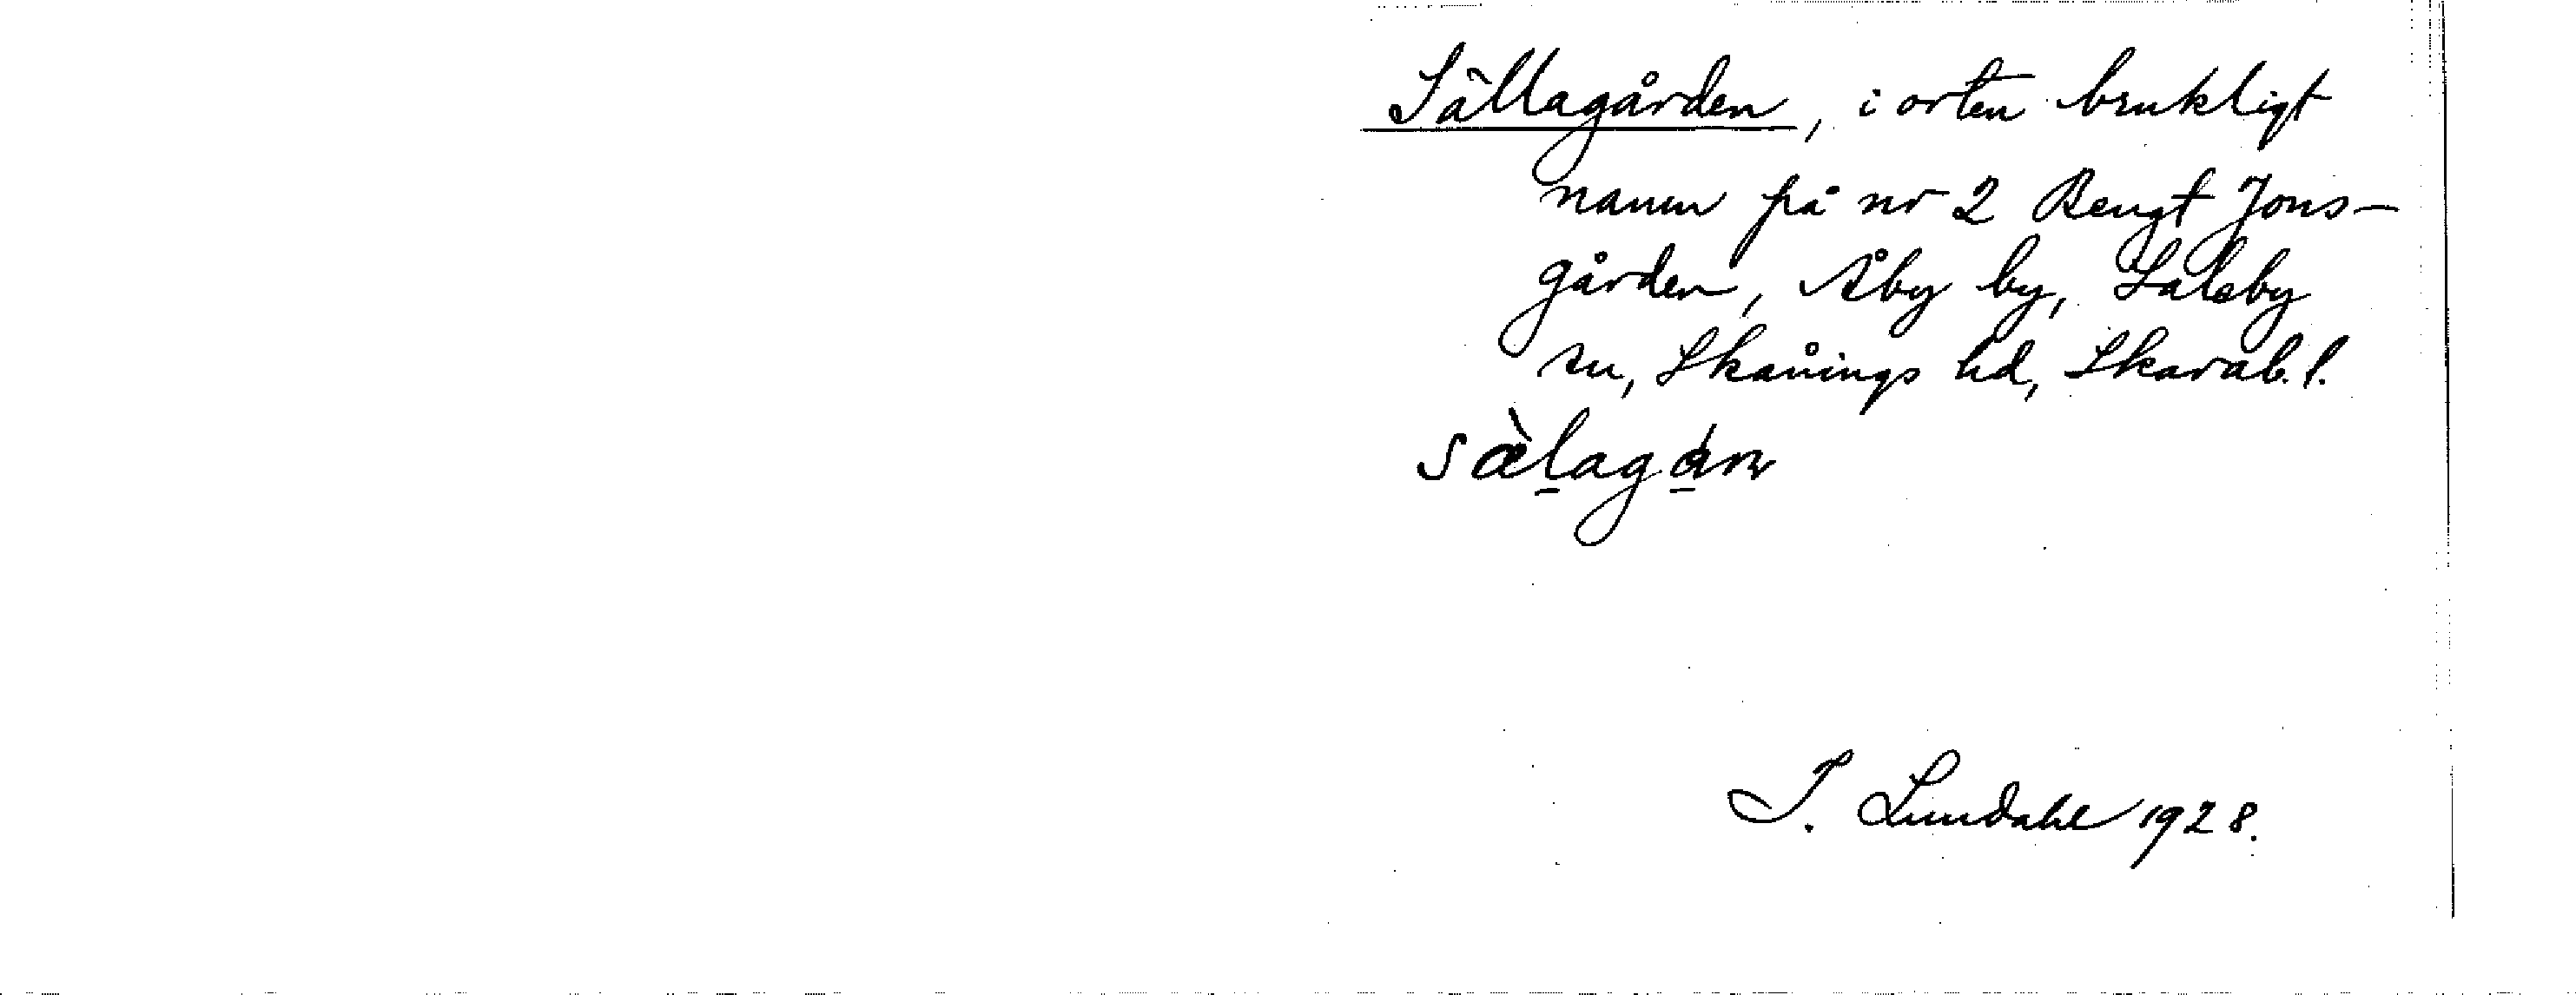 Sällagården, i orten brukligt
namn på nr 2 Bengt Jons-
gården, Åby by, Saleby
sn, Skånings hd, Skarab. l.
sæ̀lagȧn
T. Lundahl 1928.